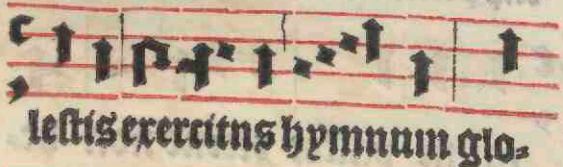 leſtis exercitns hymnum glo⸗